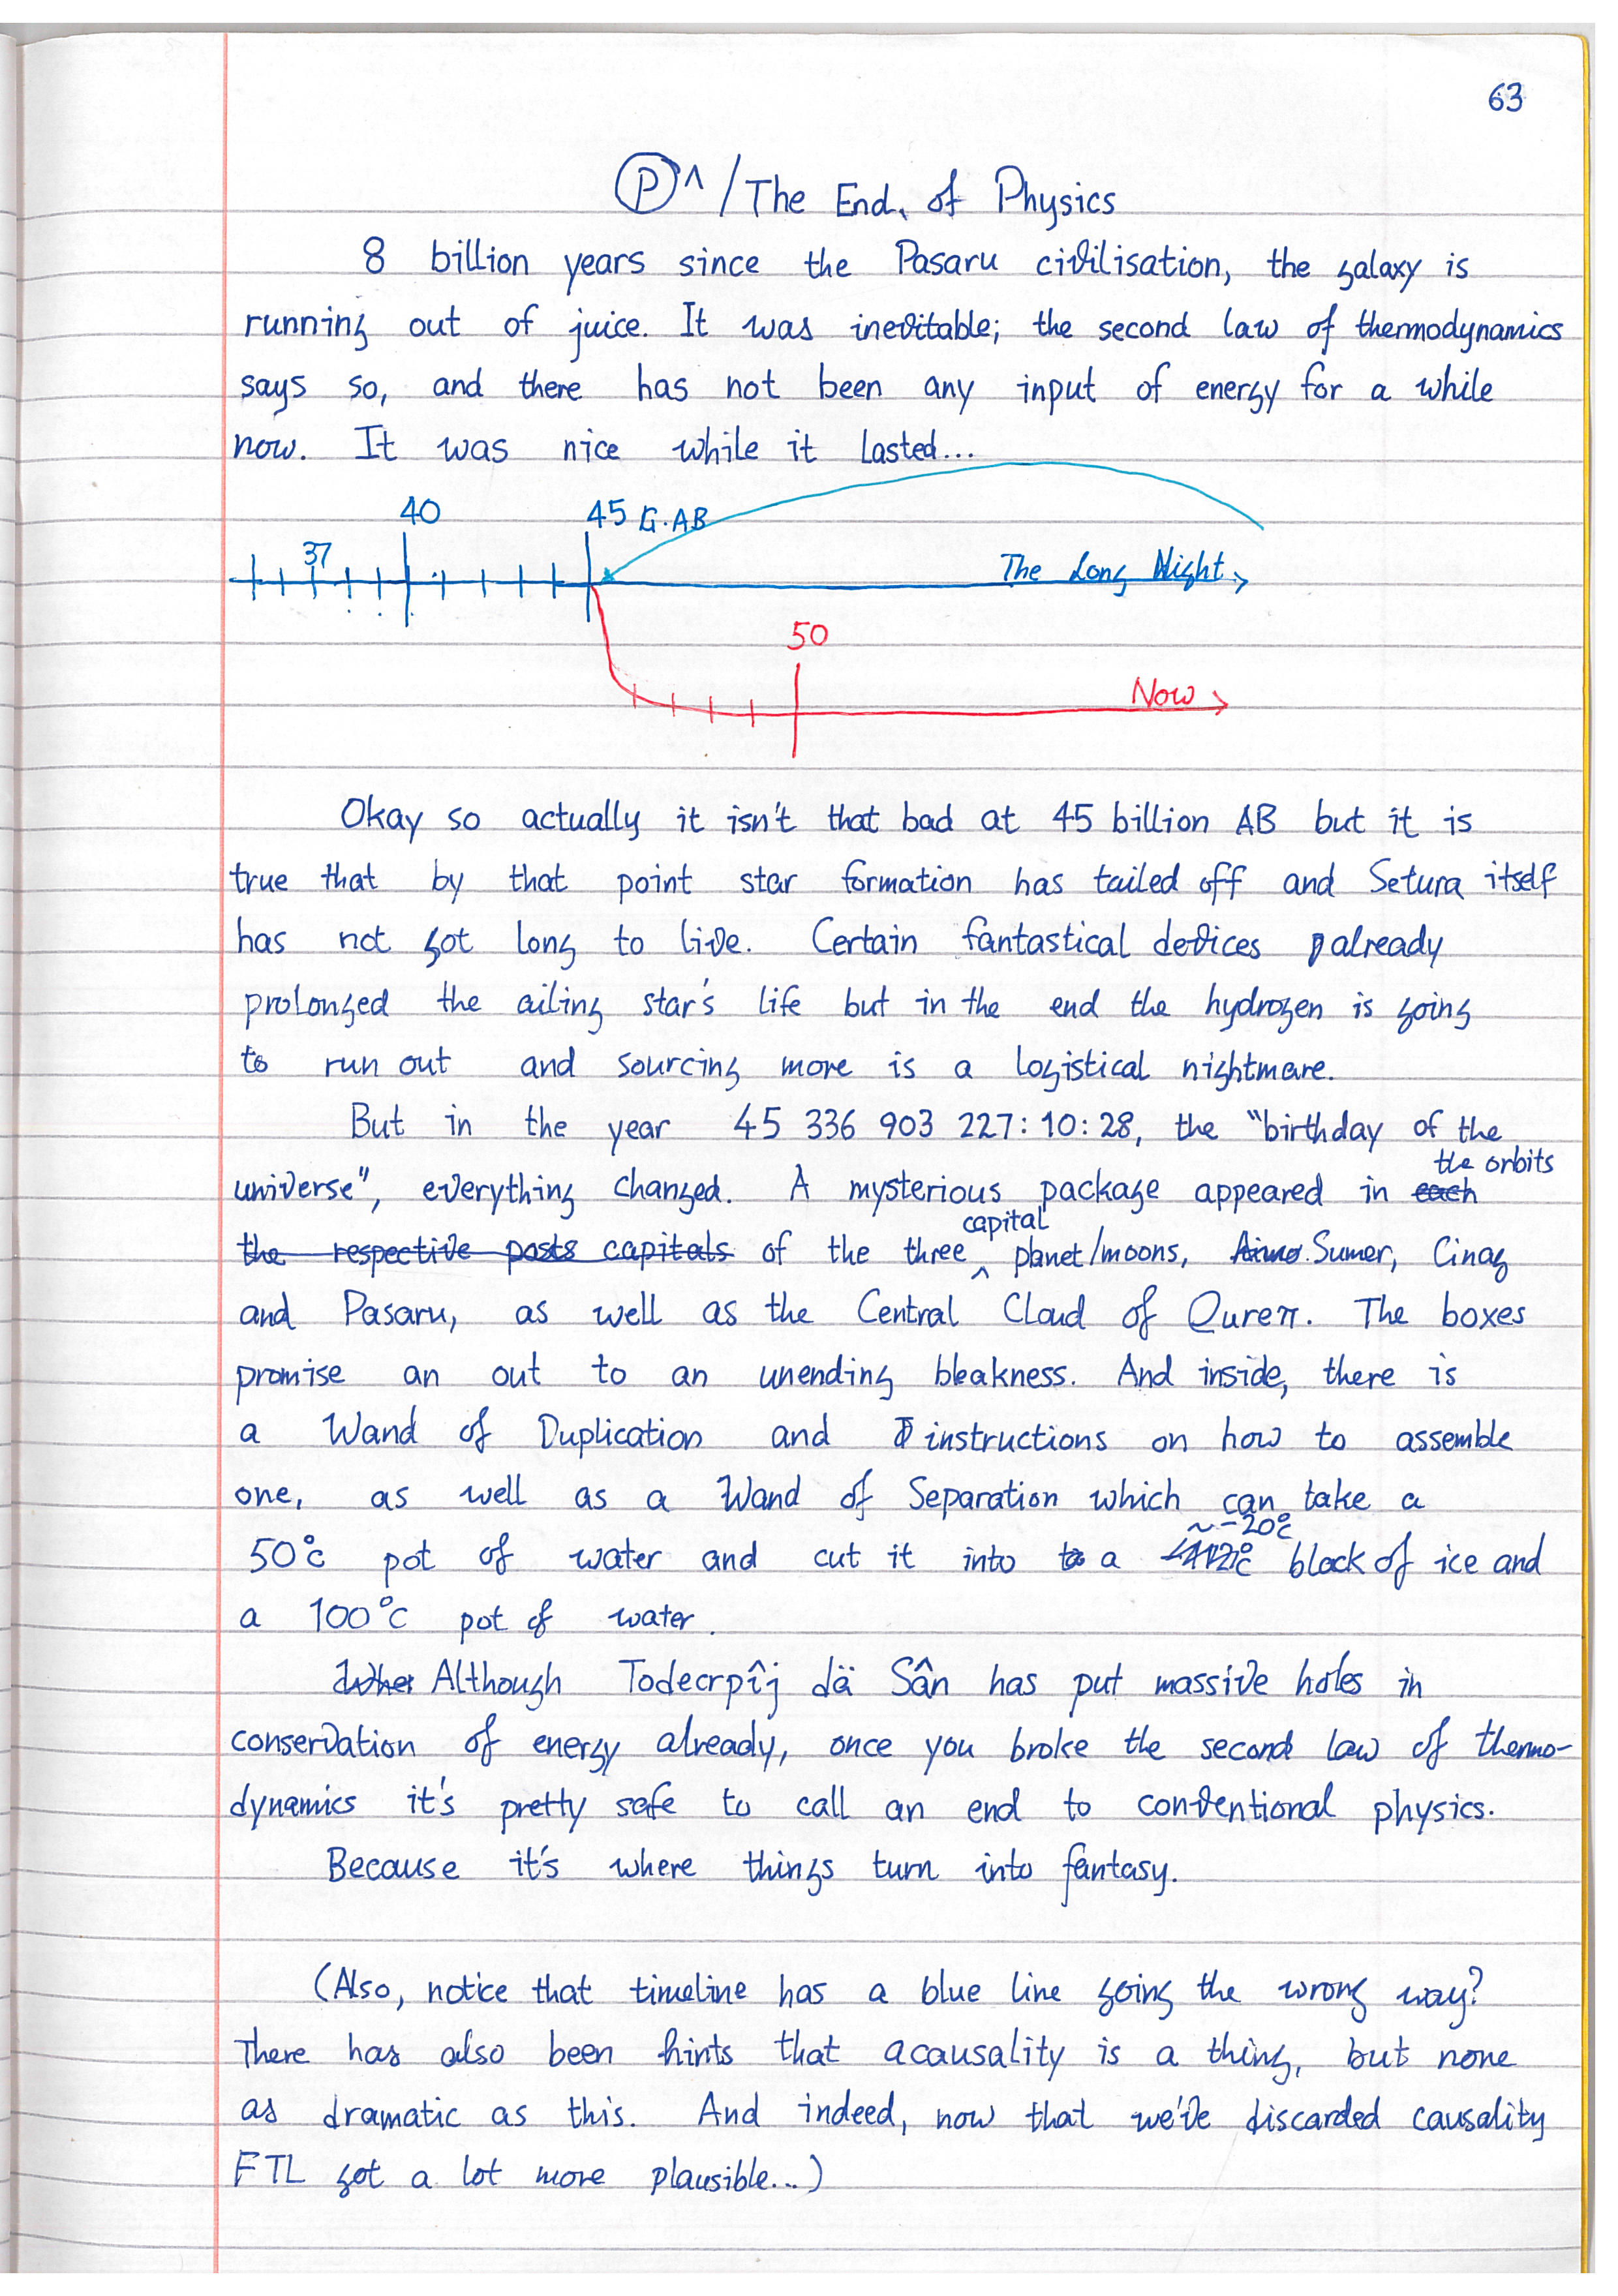 63
Ⓟ^ / The End. of Physics
8 billion years since the Pasaru civilisation, the galaxy is
running out of juice. It was inevitable; the second law of thermodynamics
says so, and there has not been any input of energy for a while
now. It was nice while it lasted...
40
45 G.AB
37
The Long Night
50
Now
Okay so actually it isn't that bad at 45 billion AB but it is
true that by that point star formation has tailed off and Setura itself
has not got long to live. Certain fantastical devices already
prolonged the ailing star's life but in the end the hydrogen is going
to run out and sourcing more is a logistical nightmare.
But in the year 45 336 903 227:10:28, the "birthday of the
the orbits
universe", everything changed. A mysterious package appeared in each
capital
the respective posts capitals of the three ^ planet/moons, Sumer, Cinag
and Pasaru, as well as the Central Cloud of Qureπ. The boxes
promise an out to an unending bleakness. And inside, there is
a Wand of Duplication and instructions on how to assemble
one, as well as a Wand of Separation which can take a
~-20°c
50°c pot of water and cut it into to a block of ice and
a 100°c pot of water.
Although Todecrpîj dä Sân has put massive holes in
conservation of energy already, once you broke the second law of thermo-
dynamics it's pretty safe to call an end to conventional physics.
Because it's where things turn into fantasy.
(Also, notice that timeline has a blue line going the wrong way?
There has also been hints that acausality is a thing, but none
as dramatic as this. And indeed, now that we've discarded causality
FTL got a lot more plausible...)